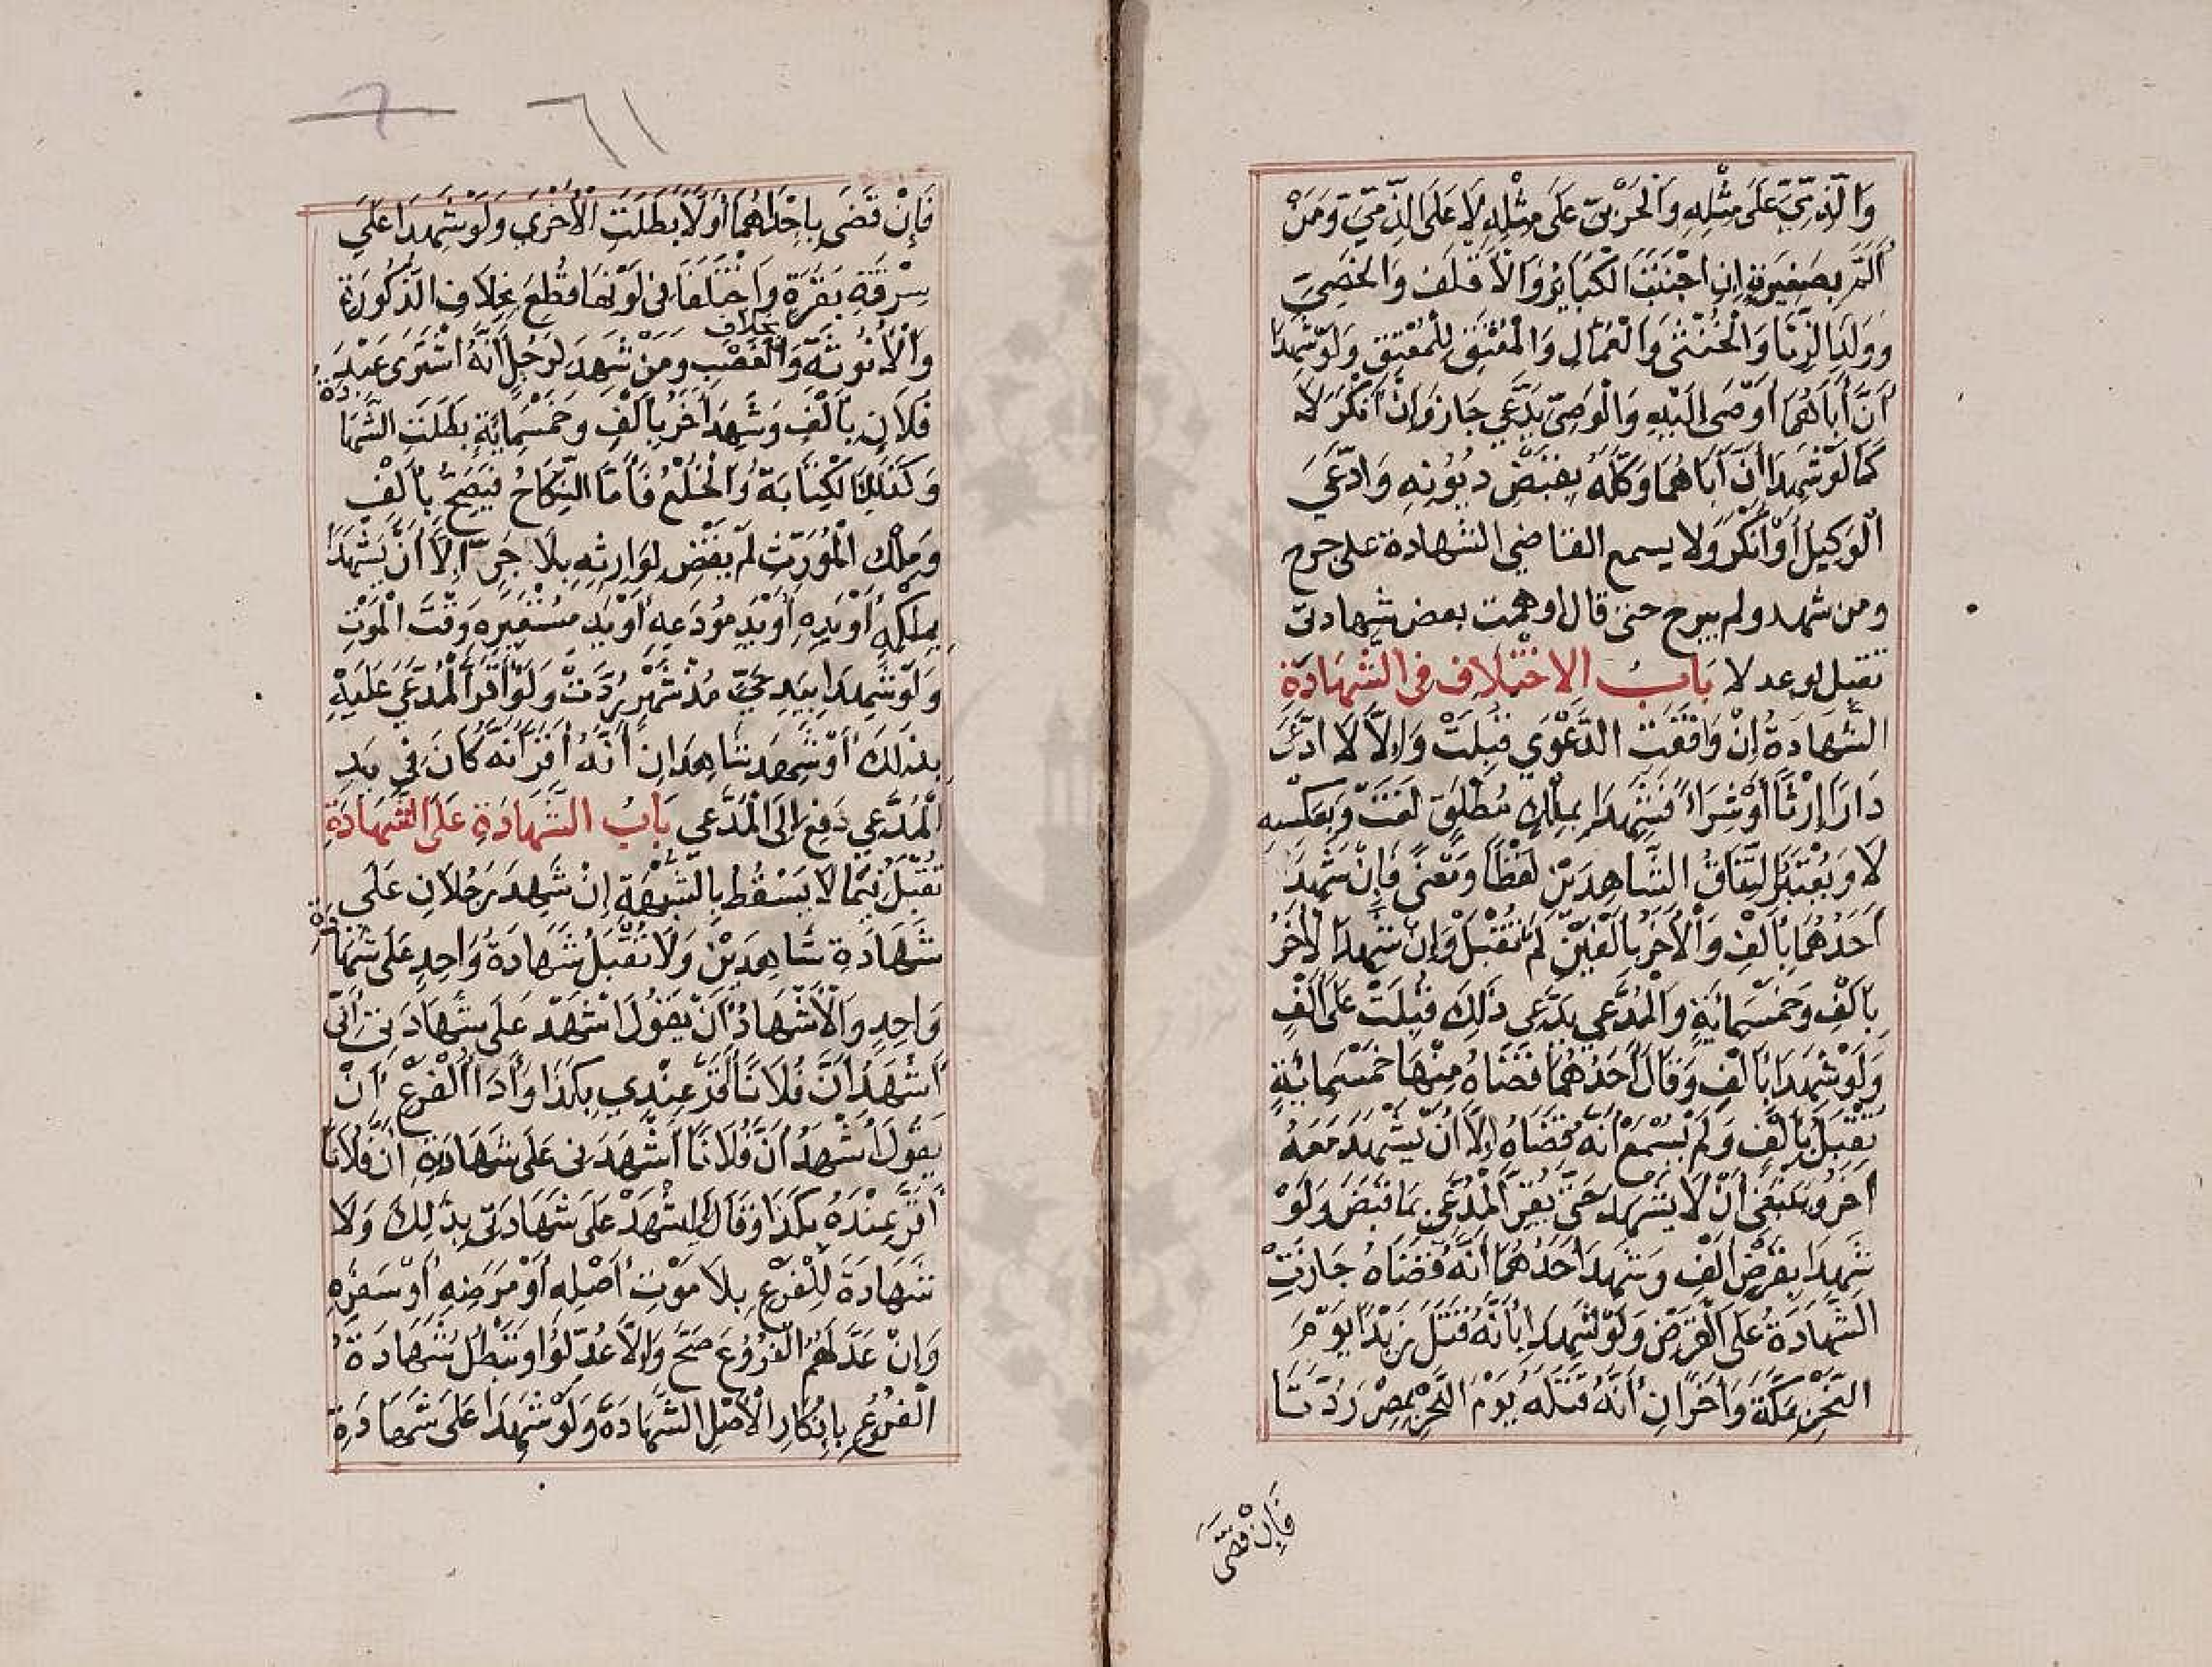 وَالذِّمِّيِّ عَلَى مِثْلِهِ وَالْحَرْبِيِّ عَلَى مِثْلِهِ لَا عَلَى الذِّمِّيِّ وَمَنْ
أَلَمَّ بِصَغِيرَةٍ إِنِ اجْتَنَبَ الْكَبَائِرَ وَالْأَقْلَفِ وَالْخَصِيِّ
وَوَلَدِ الزِّنَا وَالْخُنْثَى وَالْعُمَّالِ وَالْمُعْتِقِ لِلْمُعْتَقِ وَلَوْ شَهِدَا
أَنَّ أَبَاهُمَا أَوْصَى إِلَيْهِ وَالْوَصِيُّ يَدَّعِي جَازَ وَإِنْ أَنْكَرَ لَا
كَمَا لَوْ شَهِدَا أَنَّ أَبَاهُمَا وَكَّلَهُ بِقَبْضِ دُيُونِهِ وَادَّعَى
الْوَكِيلُ أَوْ أَنْكَرَ وَلا يسمع القاضى الشهادة على جرح
ومن شهد ولم يبرح حتى قال اوهمت بعض شهادتى
تقبل لو عدلا بَابُ الاخْتِلَافِ فى الشَّهَادَةِ
الشَّهَادَةُ إِنْ وَافَقَتِ الدَّعْوَى قُبِلَتْ وَإِلَّا لَا ادَّعَى
دَارًا إِرْثًا أَوْ شِرَاءً فَشَهِدَا بِمِلْكٍ مُطْلَقٍ لَغَتْ وَبِعَكْسِهِ
لَا وَيُعْتَبَرُ اتِّفَاقُ الشَّاهِدَيْنِ لَفْظًا وَمَعْنًى فَإِنْ شَهِدَ
أَحَدُهُمَا بِأَلْفٍ وَالْآخَرُ بِأَلْفَيْنِ لَمْ تُقْبَلْ وَإِنْ شَهِدَ الْآخَرُ
بِأَلْفٍ وَخَمْسِمِائَةٍ وَالْمُدَّعِي يَدَّعِي ذَلِكَ قُبِلَتْ عَلَى أَلْفٍ
وَلَوْ شَهِدَا بِأَلْفٍ وَقَالَ أَحَدُهُمَا قَضَاهُ مِنْهَا خَمْسَمِائَةٍ
تُقْبَلُ بِأَلْفٍ وَلَمْ يُسْمَعْ أَنَّهُ قَضَاهُ إِلَّا أَنْ يَشْهَدَ مَعَهُ
آخَرُ وَيَنْبَغِي أَنْ لَا يَشْهَدَ حَتَّى يُقِرَّ الْمُدَّعِي بِمَا قَبَضَ وَلَوْ
شَهِدَا بِقَرْضِ أَلْفٍ وَشَهِدَ أَحَدُهُمَا أَنَّهُ قَضَاهُ جَازَتِ
الشَّهَادَةُ عَلَى الْقَرْضِ وَلَوْ شَهِدَا بِأَنَّهُ قَتَلَ زَيْدًا يَوْمَ
النَّحْرِ بِمَكَّةَ وَآخَرَانِ أَنَّهُ قَتَلَهُ يَوْمَ النَّحْرِ بِمِصْرَ رُدَّتَا
فَإِنْ قَضَى
٦١
فَإِنْ قَضَى بِإِحْدَاهُمَا أَوَّلًا بَطَلَتِ الْأُخْرَى وَلَوْ شَهِدَا عَلَى
سِرْقَةِ بَقَرَةٍ وَاخْتَلَفَا فِى لَوْنِهَا قُطِعَ بِخِلَافِ الذُّكُورَةِ
وَالْأُنُوثَةِ وَالْغَصْبِ وَمَنْ شَهِدَ لِرَجُلٍ أَنَّهُ اشْتَرَى عَبْدَ
فُلَانٍ بِأَلْفٍ وَشَهِدَ آخَرُ بِأَلْفٍ وَخَمْسِمِائَةٍ بَطَلَتِ الشَّهَادَةُ
وَكَذَلِكَ الْكِتَابَةُ وَالْخُلْعُ فَأَمَّا النِّكَاحُ فَيَصِحُّ بِأَلْفٍ
وَمِلْكُ الْمُوَرِّثِ لَمْ يُقْضَ لِوَارِثِهِ بِلَا جَرٍّ إِلَّا أَنْ يَشْهَدَا
بِمِلْكِهِ أَوْ يَدِهِ أَوْ يَدِ مُودَعِهِ أَوْ يَدِ مُسْتَعِيرِهِ وَقْتَ الْمَوْتِ
وَلَوْ شَهِدَا بِيَدِ حَيٍّ مُذْ شَهْرٍ رُدَّتْ وَلَوْ أَقَرَّ الْمُدَّعَى عَلَيْهِ
بِذَلِكَ أَوْ شَهِدَ شَاهِدَانِ أَنَّهُ أَقَرَّ أَنَّهُ كَانَ فِي يَدِ
الْمُدَّعِي دُفِعَ إِلَى الْمُدَّعِى بَابُ الشَّهَادَةِ عَلَى الشَّهَادَةِ
تُقْبَلُ فِيمَا لَا يَسْقُطُ بِالشُّبْهَةِ إِنْ شَهِدَ رَجُلَانِ عَلَى
شَهَادَةِ شَاهِدَيْنِ وَلَا تُقْبَلُ شَهَادَةُ وَاحِدٍ عَلَى شَهَادَةِ
وَاحِدٍ وَالْإِشْهَادُ أَنْ يَقُولَ اشْهَدْ عَلَى شَهَادَتِى أَنِّى
أَشْهَدُ أَنَّ فُلَانًا أَقَرَّ عِنْدِي بِكَذَا وَأَدَاءُ الْفَرْعِ أَنْ
يَقُولَ أَشْهَدُ أَنَّ فُلَانًا أَشْهَدَنِى عَلَى شَهَادَتِهِ أَنَّ فُلَانًا
أَقَرَّ عِنْدَهُ بِكَذَا وَقَالَ لِى اشْهَدْ عَلَى شَهَادَتِى بِذَلِكَ وَلَا
شَهَادَةَ لِلْفَرْعِ بِلَا مَوْتِ أَصْلِهِ أَوْ مَرَضِهِ أَوْ سَفَرِهِ
وَإِنْ عَدَّلَهُمُ الْفُرُوعُ صَحَّ وَإِلَّا عُدِّلُوا وَتَبْطُلُ شَهَادَةُ
الْفُرُوعِ بِإِنْكَارِ الْأَصْلِ الشَّهَادَةَ وَلَوْ شَهِدَا عَلَى شَهَادَةِ